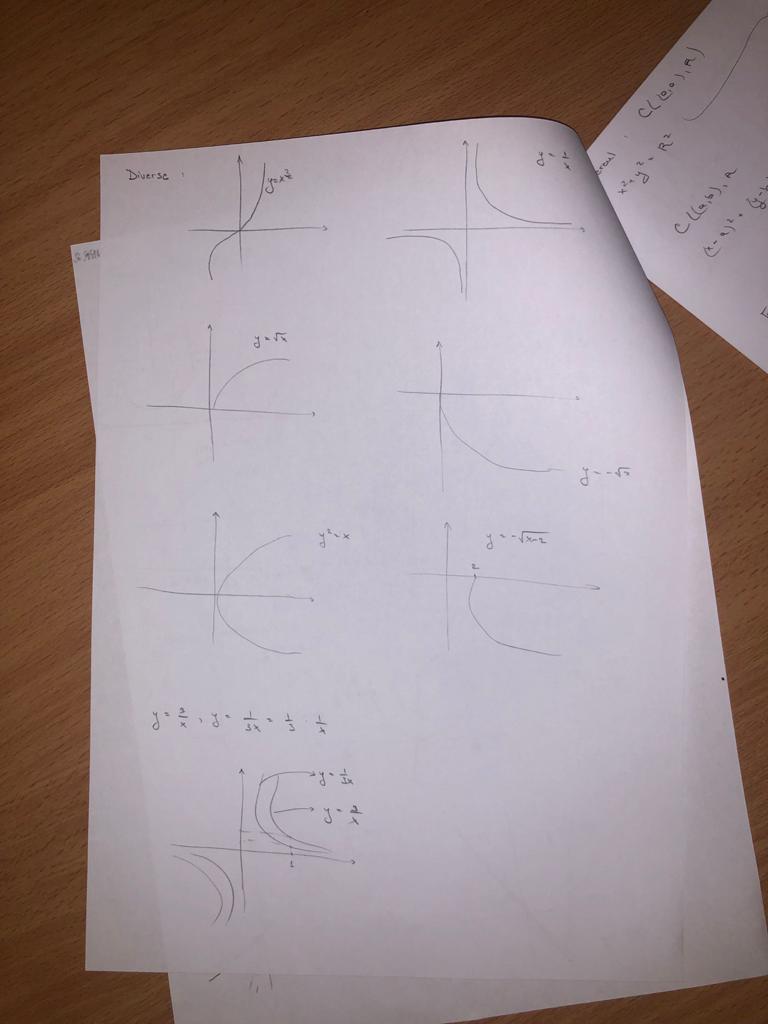 Diverse :
y = x³
y = 1/x
y = √x
y = -√x
y² = x
y = -√x-2
2
y = 3/x , y = 1/3x = 1/3 · 1/x
y = 1/3x
y = 3/x
1
C((0,0), R)
x² + y² = R²
C((a,b), R
(x-a)² + (y-b